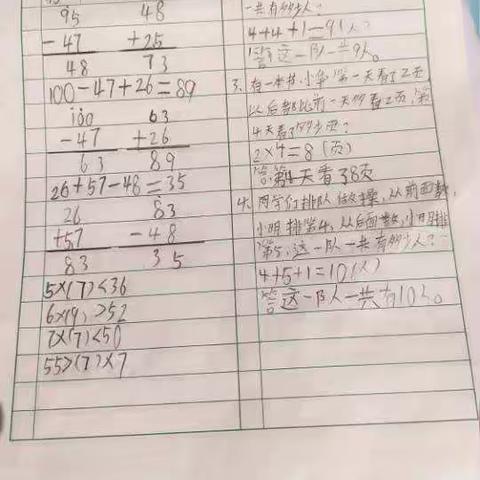 95 48
- 47 + 25
48 73
100-47+26=89
100 63
- 47 +26
63 89
26+57-48=35
26 83
+57 - 48
83 35
5×(7)<36
6×(9)>52
7×(7)<50
55>(7)×7
一共有多少人?
4+4+1=9(人)
答:这一队一共9人。
3. 有一本书,小华第一天看了2页,
以后都比前一天多看2页,第
4天看了多少页?
2×4=8(页)
答:第4天看了8页
4. 同学们排队做操,从前面数,
小明排第4,从后面数,小明排
第5,这一队一共有多少人?
4+5+1=10(人)
答:这一队一共有10人。